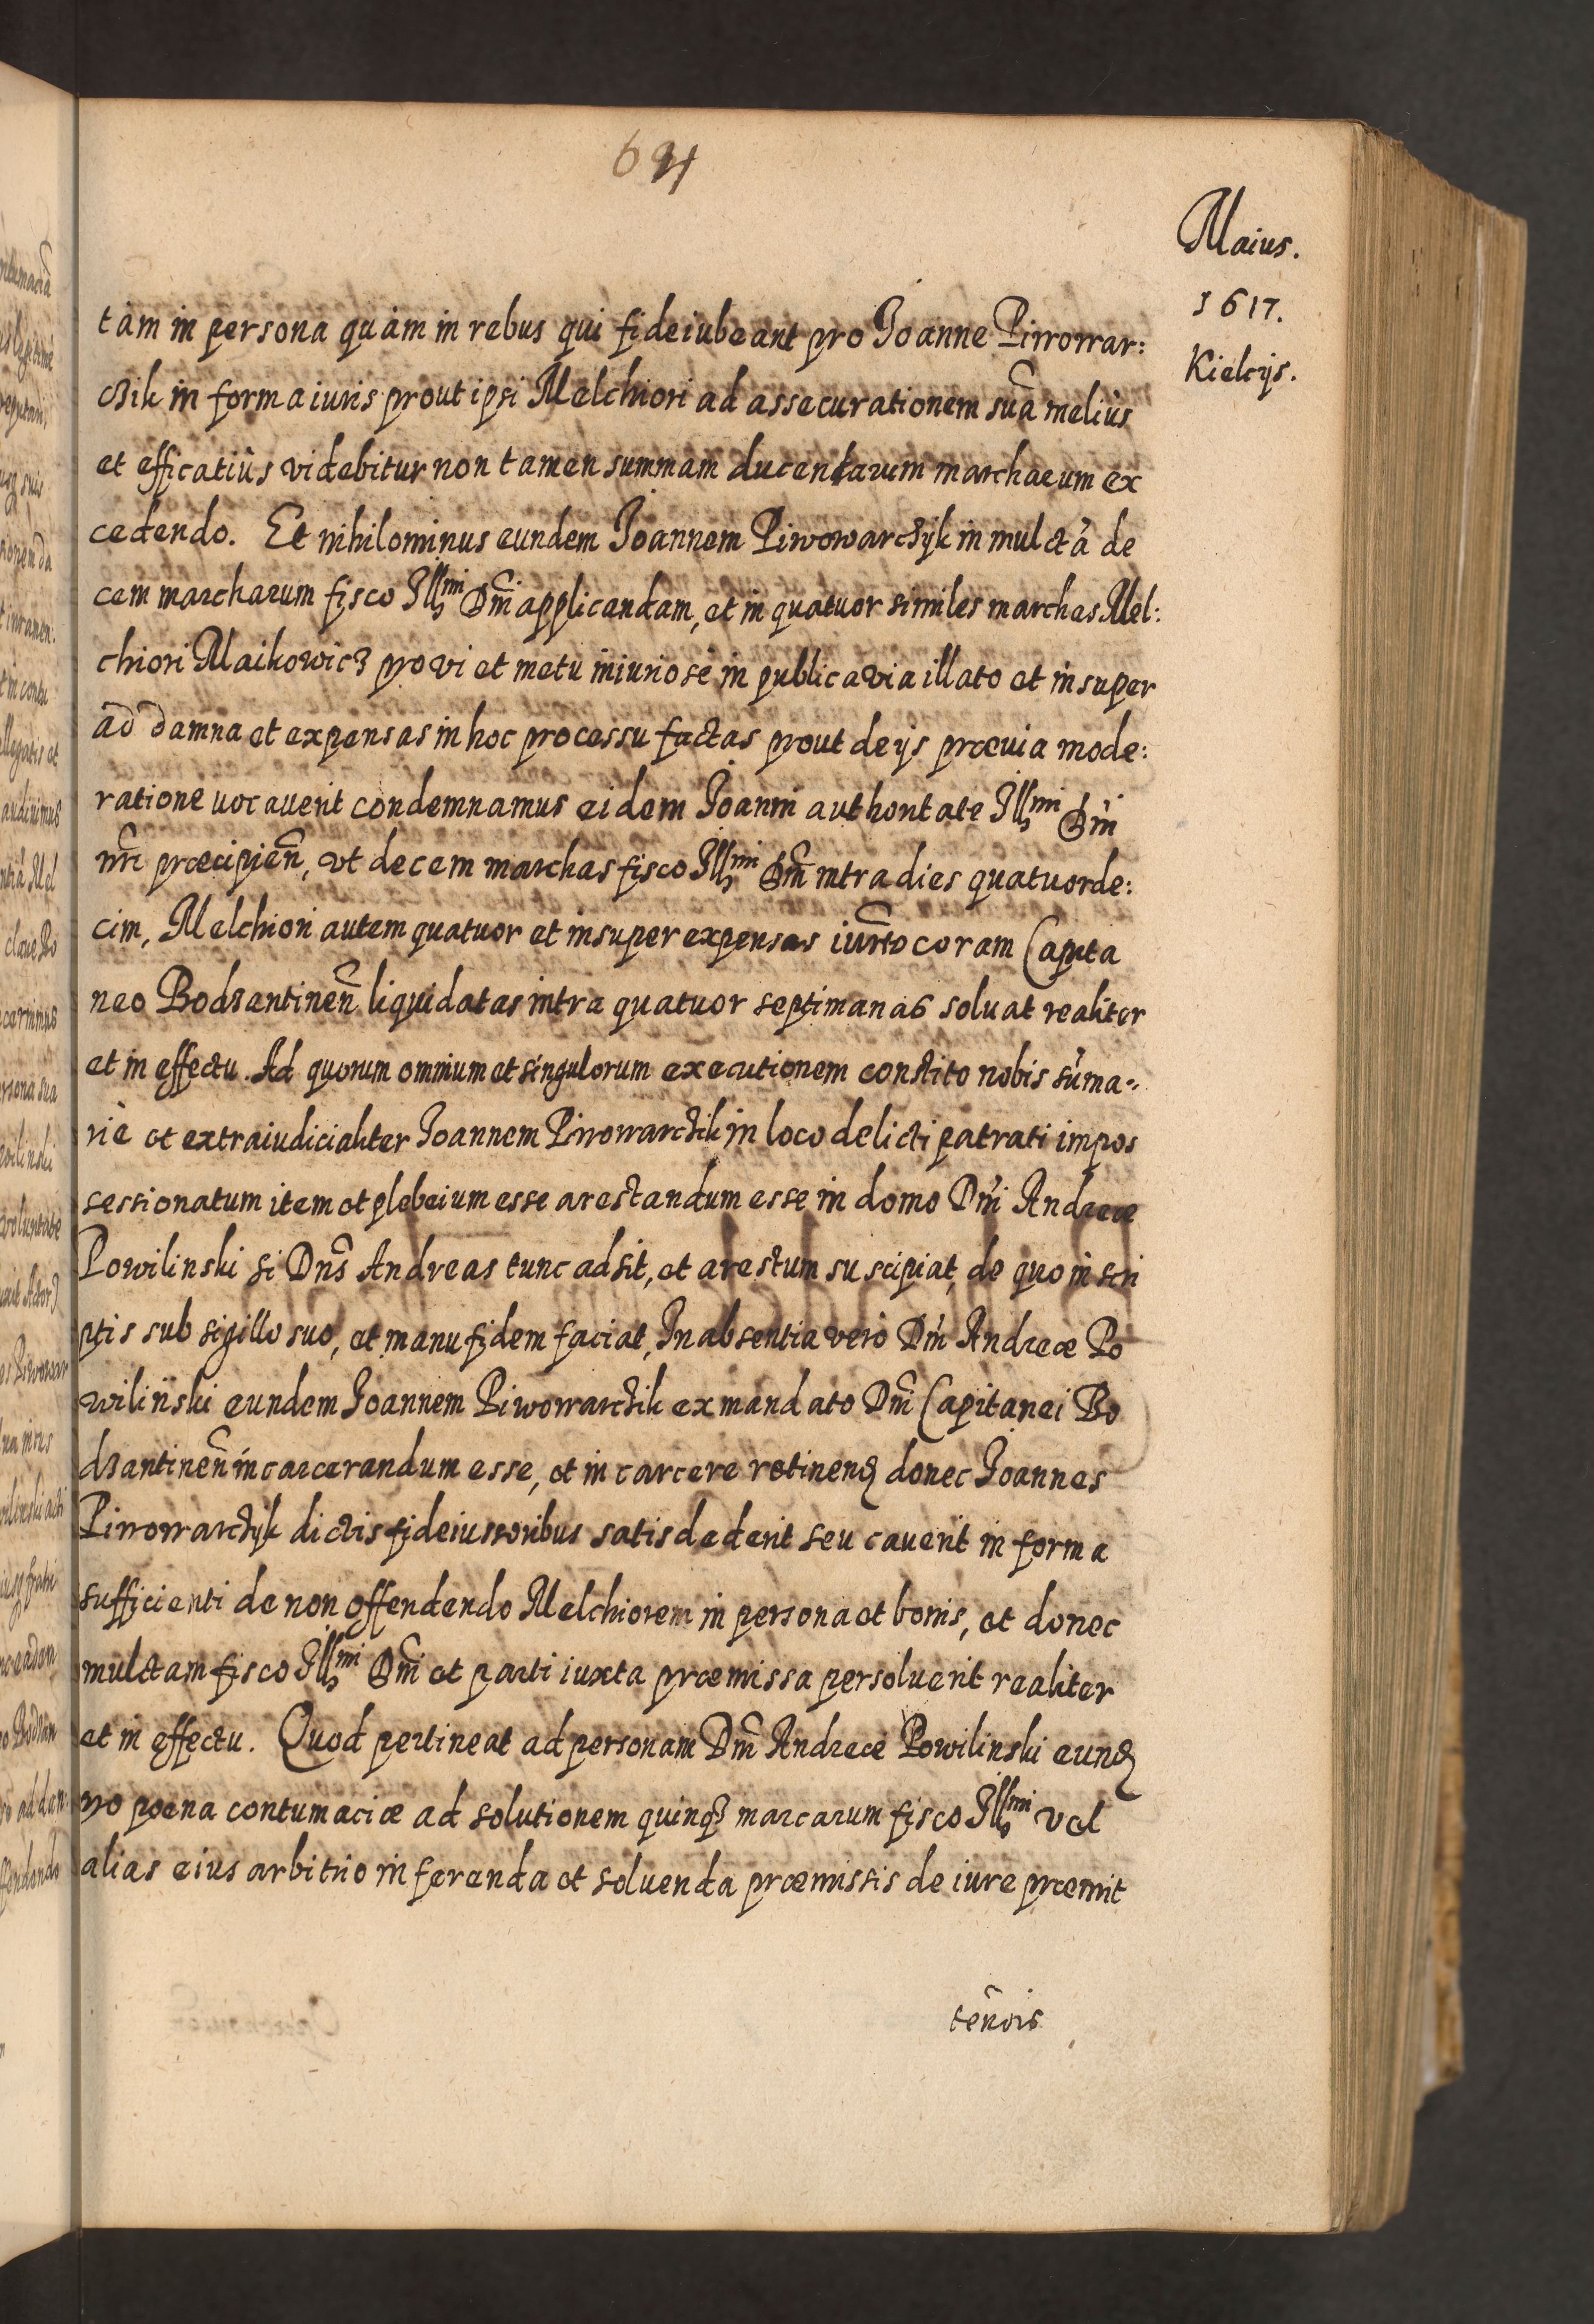 694
Maius.
1617.
Kielcijs.
tàm in persona quàm in rebus qui fideiubeant pro Joanne Piwowar:
czik in forma iuris prout ipsi Melchiori ad assecurationem suã meliùs
et efficatiùs videbitur non tamen summam ducentarum marcharum ex
cedendo. Et nihilominus eundem Joannem Piwowarczyk in mulctã de
cem marcharum fisco Jllmi Dm̃i applicandam, et in quatuor similes marchas Mel:
chiori Maikowicz pro vi et metu iniuriosè in publica via illato et insuper
ad damna et expensas in hoc processu factas prout de ijs prævia mode:
ratione uocauerit condemnamus eidem Joanni authoritate Jllmi Dm̃i
nr̃i præcipien̄, vt decem marchas fisco Jllmi Dm̃i intra dies quatuorde:
cim, Melchiori autem quatuor et insuper expensas iurñto coram Capita
neo Bodzantinen̄ liquidatas intra quatuor septimanas soluat realiter
et in effectu. Ad quorum omnium et singulorum executionem constito nobis sum̃a
riè et extraiudicialiter Joannem Piwowarczik in loco delicti patrati impos
sessionatum item et plebeium esse arestandum esse in domo Dm̃i Andreæ
Powilinski si Dnš Andreas tunc adsit, et arestum suscipiat, de quo in scri
ptis sub sigillo suo, et manu fidem faciat, Jn absentia verò Dm̃i Andreæ Po
wilinski eundem Joannem Piwowarczik ex mandato Dm̃i Capitanei Bo
dzantinen̄ incarcerandum esse, et in carcere retinenꝫ donec Joannes
Piwowarczyk dictis fideiussoribus satis dederit seu cauerit in forma
sufficienti de non offendendo Melchiorem in persona et bonis, et donec
mulctam fisco Jllmi Dm̃i et parti iuxta præmissa persoluerit realiter
et in effectu. Quod pertineat ad personam Dm̃i Andreæ Powilinski eunꝫ
pro poena contumaciæ ad solutionem quinqꝫ marcarum fisco Jllmi vel
alias eius arbitrio inferenda et soluenda præmissis de iure præmit
ten̄ois